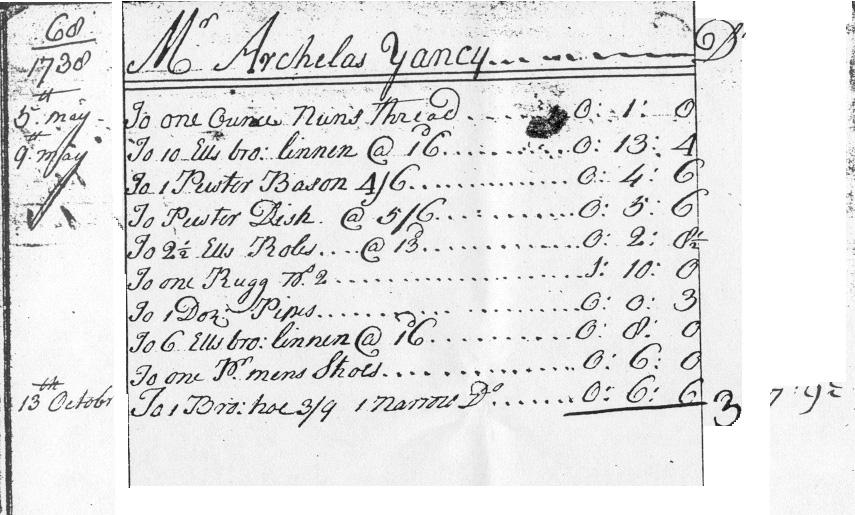 68
1738
Mr Archelas Yancy Dr
5th may To one Ounce Nuns Thread 0: 1: 0
9th may To 10 Ells bro: linnen @ 16d 0: 13: 4
To 1 Pewter Bason 4/6 0: 4: 6
To Pewter Dish @ 5/6 0: 5: 6
To 2½ Ells Roles @ 13d 0: 2: 8½
To one Rugg No. 2 1: 10: 0
To 1 Doz: Pipes 0: 0: 3
To 6 Ells bro: linnen @ 16d 0: 8: 0
To one Pr mens Shoes 0: 6: 0
13th Octobr To 1 Bro: hoe 3/9 1 narrow Do 0: 6: 6 3 7: 9½